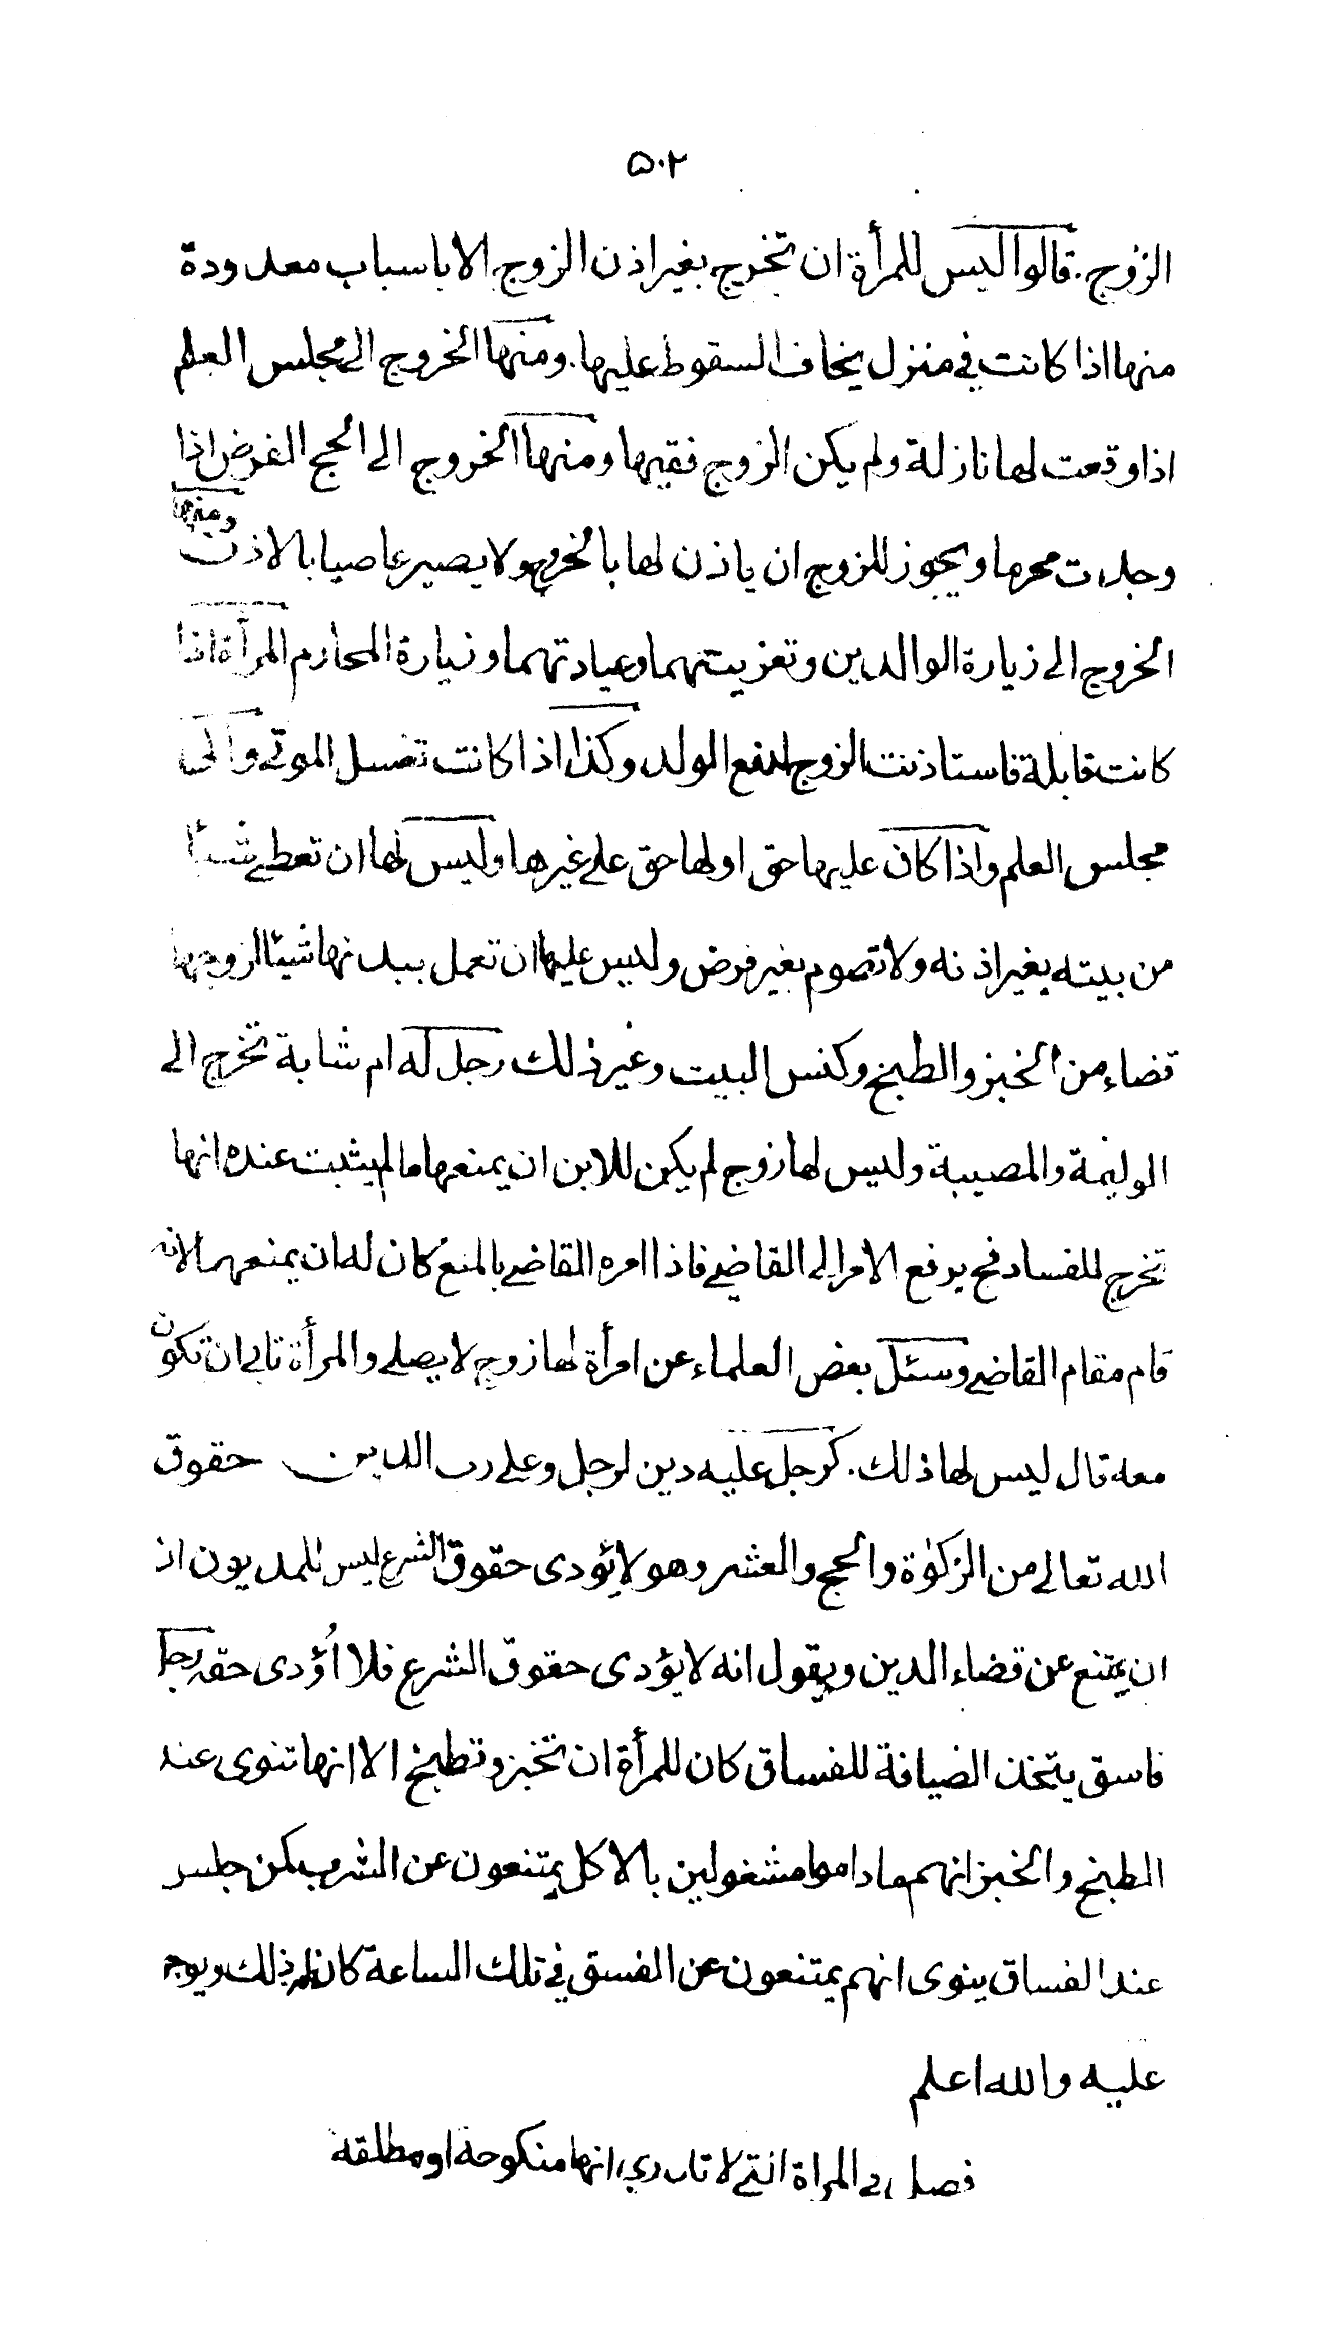 ۵۰۲
الزوج . قالوا ليس للمرأة ان تخرج بغير اذن الزوج الا باسباب معدودة
منها اذا كانت في منزل يخاف السقوط عليها . ومنها الخروج الى مجلس العلم
اذا وقعت لها نازلة ولم يكن الزوج فقيها ومنها الخروج الى الحج الفرض اذا
وجدت محرما ويجوز للزوج ان ياذن لها بالخروج ولا يصير عاصيا بالاذن ومنها
الخروج الى زيارة الوالدين وتعزيتهما وعيادتهما وزيارة المحارم المرأة اذا
كانت قابلة فاستاذنت الزوج لدفع الولد وكذا اذا كانت تغسل الموتى والى
مجلس العلم واذا كان عليها حق او لها حق على غيرها وليس لها ان تعطي شيئا
من بيته بغير اذنه ولا تصوم بغير فرض وليس عليها ان تعمل بيدنها شيئا لزوجها
قضاء من الخبز والطبخ وكنس البيت وغير ذلك رجل له ام شابة تخرج الى
الوليمة والمصيبة وليس لها زوج لم يكن للابن ان يمنعها ما لم يثبت عنده انها
تخرج للفساد فح يرفع الامر الى القاضي فاذا امره القاضي بالمنع كان له ان يمنعها لانه
قام مقام القاضي وسئل بعض العلماء عن امرأة لها زوج لا يصلي والمرأة تابى ان تكون
معه قال ليس لها ذلك . كرجل عليه دين لرجل وعلى رب الدين حقوق
الله تعالى من الزكوٰة والحج والعشر وهو لا يؤدى حقوق الشرع ليس للمديون ان
ان يمتنع عن قضاء الدين ويقول انه لا يؤدى حقوق الشرع فلا اُؤدى حقه رجل
فاسق يتخذ الضيافة للفساق كان للمرأة ان تخبز وتطبخ الا انها تنوى عند
الطبخ والخبز انهم ما داموا مشغولين بالاكل يمتنعون عن الشرب كمن جلس
عند الفساق ينوى انهم يمتنعون عن الفسق في تلك الساعة كان له ذلك ويوجر
عليه والله اعلم
فصل في المراة التي لا تدري انها منكوحة او مطلقة